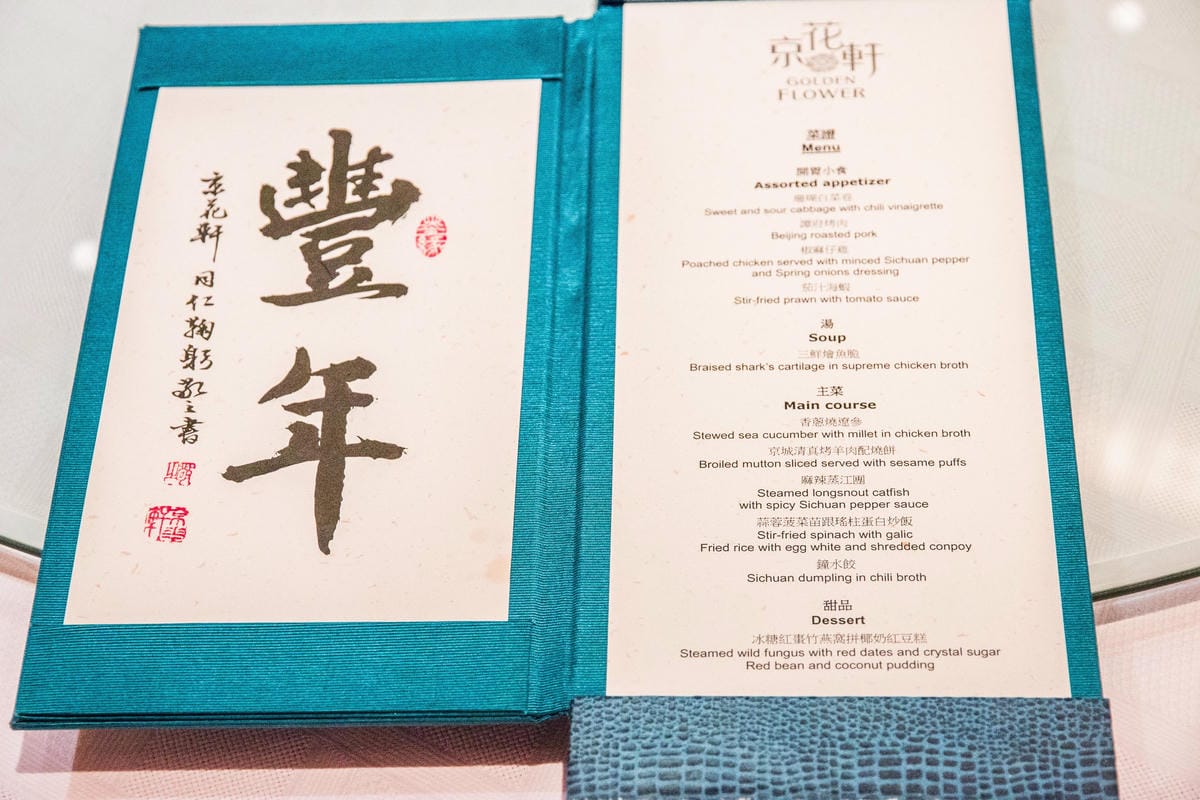 豐年
京花軒 同仁鞠躬敬書
京花軒
GOLDEN
FLOWER
菜譜
Menu
開胃小食
Assorted appetizer
珊瑚白菜卷
Sweet and sour cabbage with chili vinaigrette
譚府烤肉
Beijing roasted pork
椒麻仔雞
Poached chicken served with minced Sichuan pepper
and Spring onions dressing
茄汁海蝦
Stir-fried prawn with tomato sauce
湯
Soup
三鮮燴魚脆
Braised shark's cartilage in supreme chicken broth
主菜
Main course
香蔥燒遼參
Stewed sea cucumber with millet in chicken broth
京城清真烤羊肉配燒餅
Broiled mutton sliced served with sesame puffs
麻辣蒸江團
Steamed longsnout catfish
with spicy Sichuan pepper sauce
蒜蓉菠菜苗跟瑤柱蛋白炒飯
Stir-fried spinach with galic
Fried rice with egg white and shredded conpoy
鐘水餃
Sichuan dumpling in chili broth
甜品
Dessert
冰糖紅棗竹燕窩拼椰奶紅豆糕
Steamed wild fungus with red dates and crystal sugar
Red bean and coconut pudding